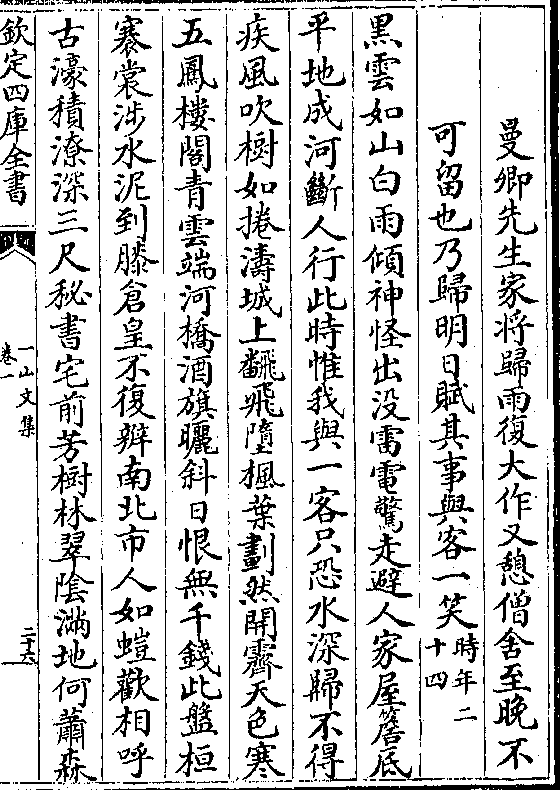 曼卿先生家将歸雨復大作又憩僧舍至晚不
可留也乃歸明日賦其事與客一笑時年二十四
黒雲如山白雨傾神怪出没雷電驚走避人家屋簷底
平地成河斷人行此時惟我與一客只恐水深歸不得
疾風吹樹如捲濤城上飜飛墮楓葉劃然開霽天色寒
五鳳樓閣青雲端河橋酒旗曬斜日恨無千錢此盤桓
褰裳涉水泥到膝倉皇不復辨南北市人如螘歡相呼
古濠積潦深三尺秘書宅前芳樹林翠陰滿地何蕭森
欽定四庫全書
一山文集
卷一
二十六